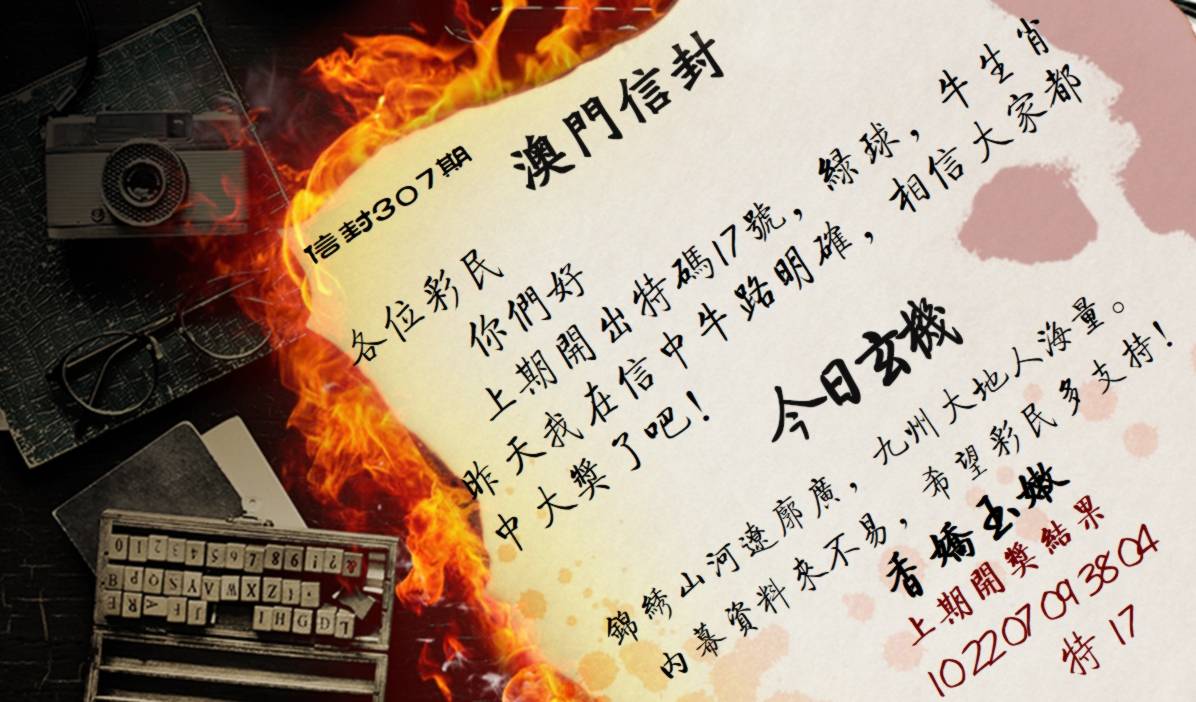 澳門信封
信封307期
各位彩民
你們好
上期開出特碼17號，綠球，牛生肖
昨天我在信中牛路明確，相信大家都
中大獎了吧！
今日玄機
錦綉山河遼廓廣，九州大地人海量。
内幕資料來不易，希望彩民多支持！
香嬌玉嫩
上期開獎結果
10 22 07 09 38 04
特 17
0 1 2 3 4 5 6 7 8 9 ! ? &